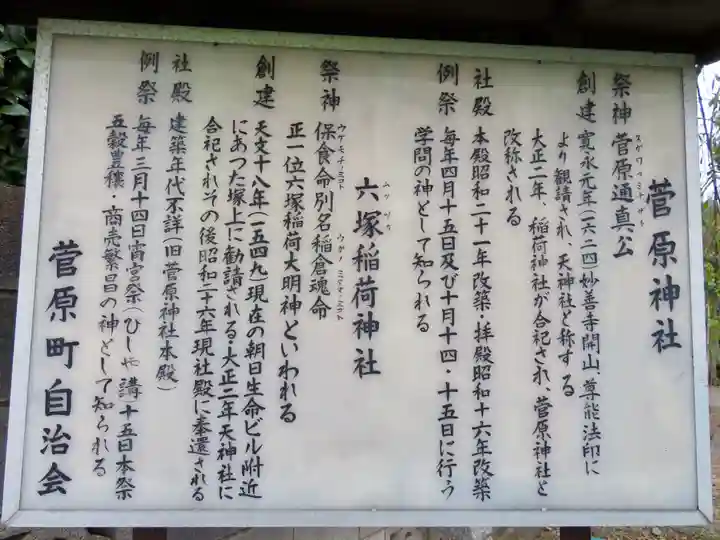 菅原神社
祭神 菅原道真公
スガワラミチザネ
創建 寛永元年(一六二四)妙善寺開山、尊能法印に
より観請され、天神社と称する
大正二年、稲荷神社が合祀され、菅原神社と
改称される
社殿 本殿昭和二十一年改築・拝殿昭和十六年改築
例祭 毎年四月十五日及び十月十四・十五日に行う
学問の神として知られる
六塚稲荷神社
ムツヅカ
祭神 保食命別名稲倉魂命
ウケモチノミコト ウガノミタマノミコト
正一位六塚稲荷大明神といわれる
創建 天文十八年(一五四九)現在の朝日生命ビル附近
にあつた塚上に勧請される・大正二年天神社に
合祀されその後昭和二十六年現社殿に奉還される
社殿 建築年代不詳(旧菅原神社本殿)
例祭 毎年三月十四日宵宮祭(ひしや講)十五日本祭
五穀豊穣・商売繁昌の神として知られる
菅原町自治会